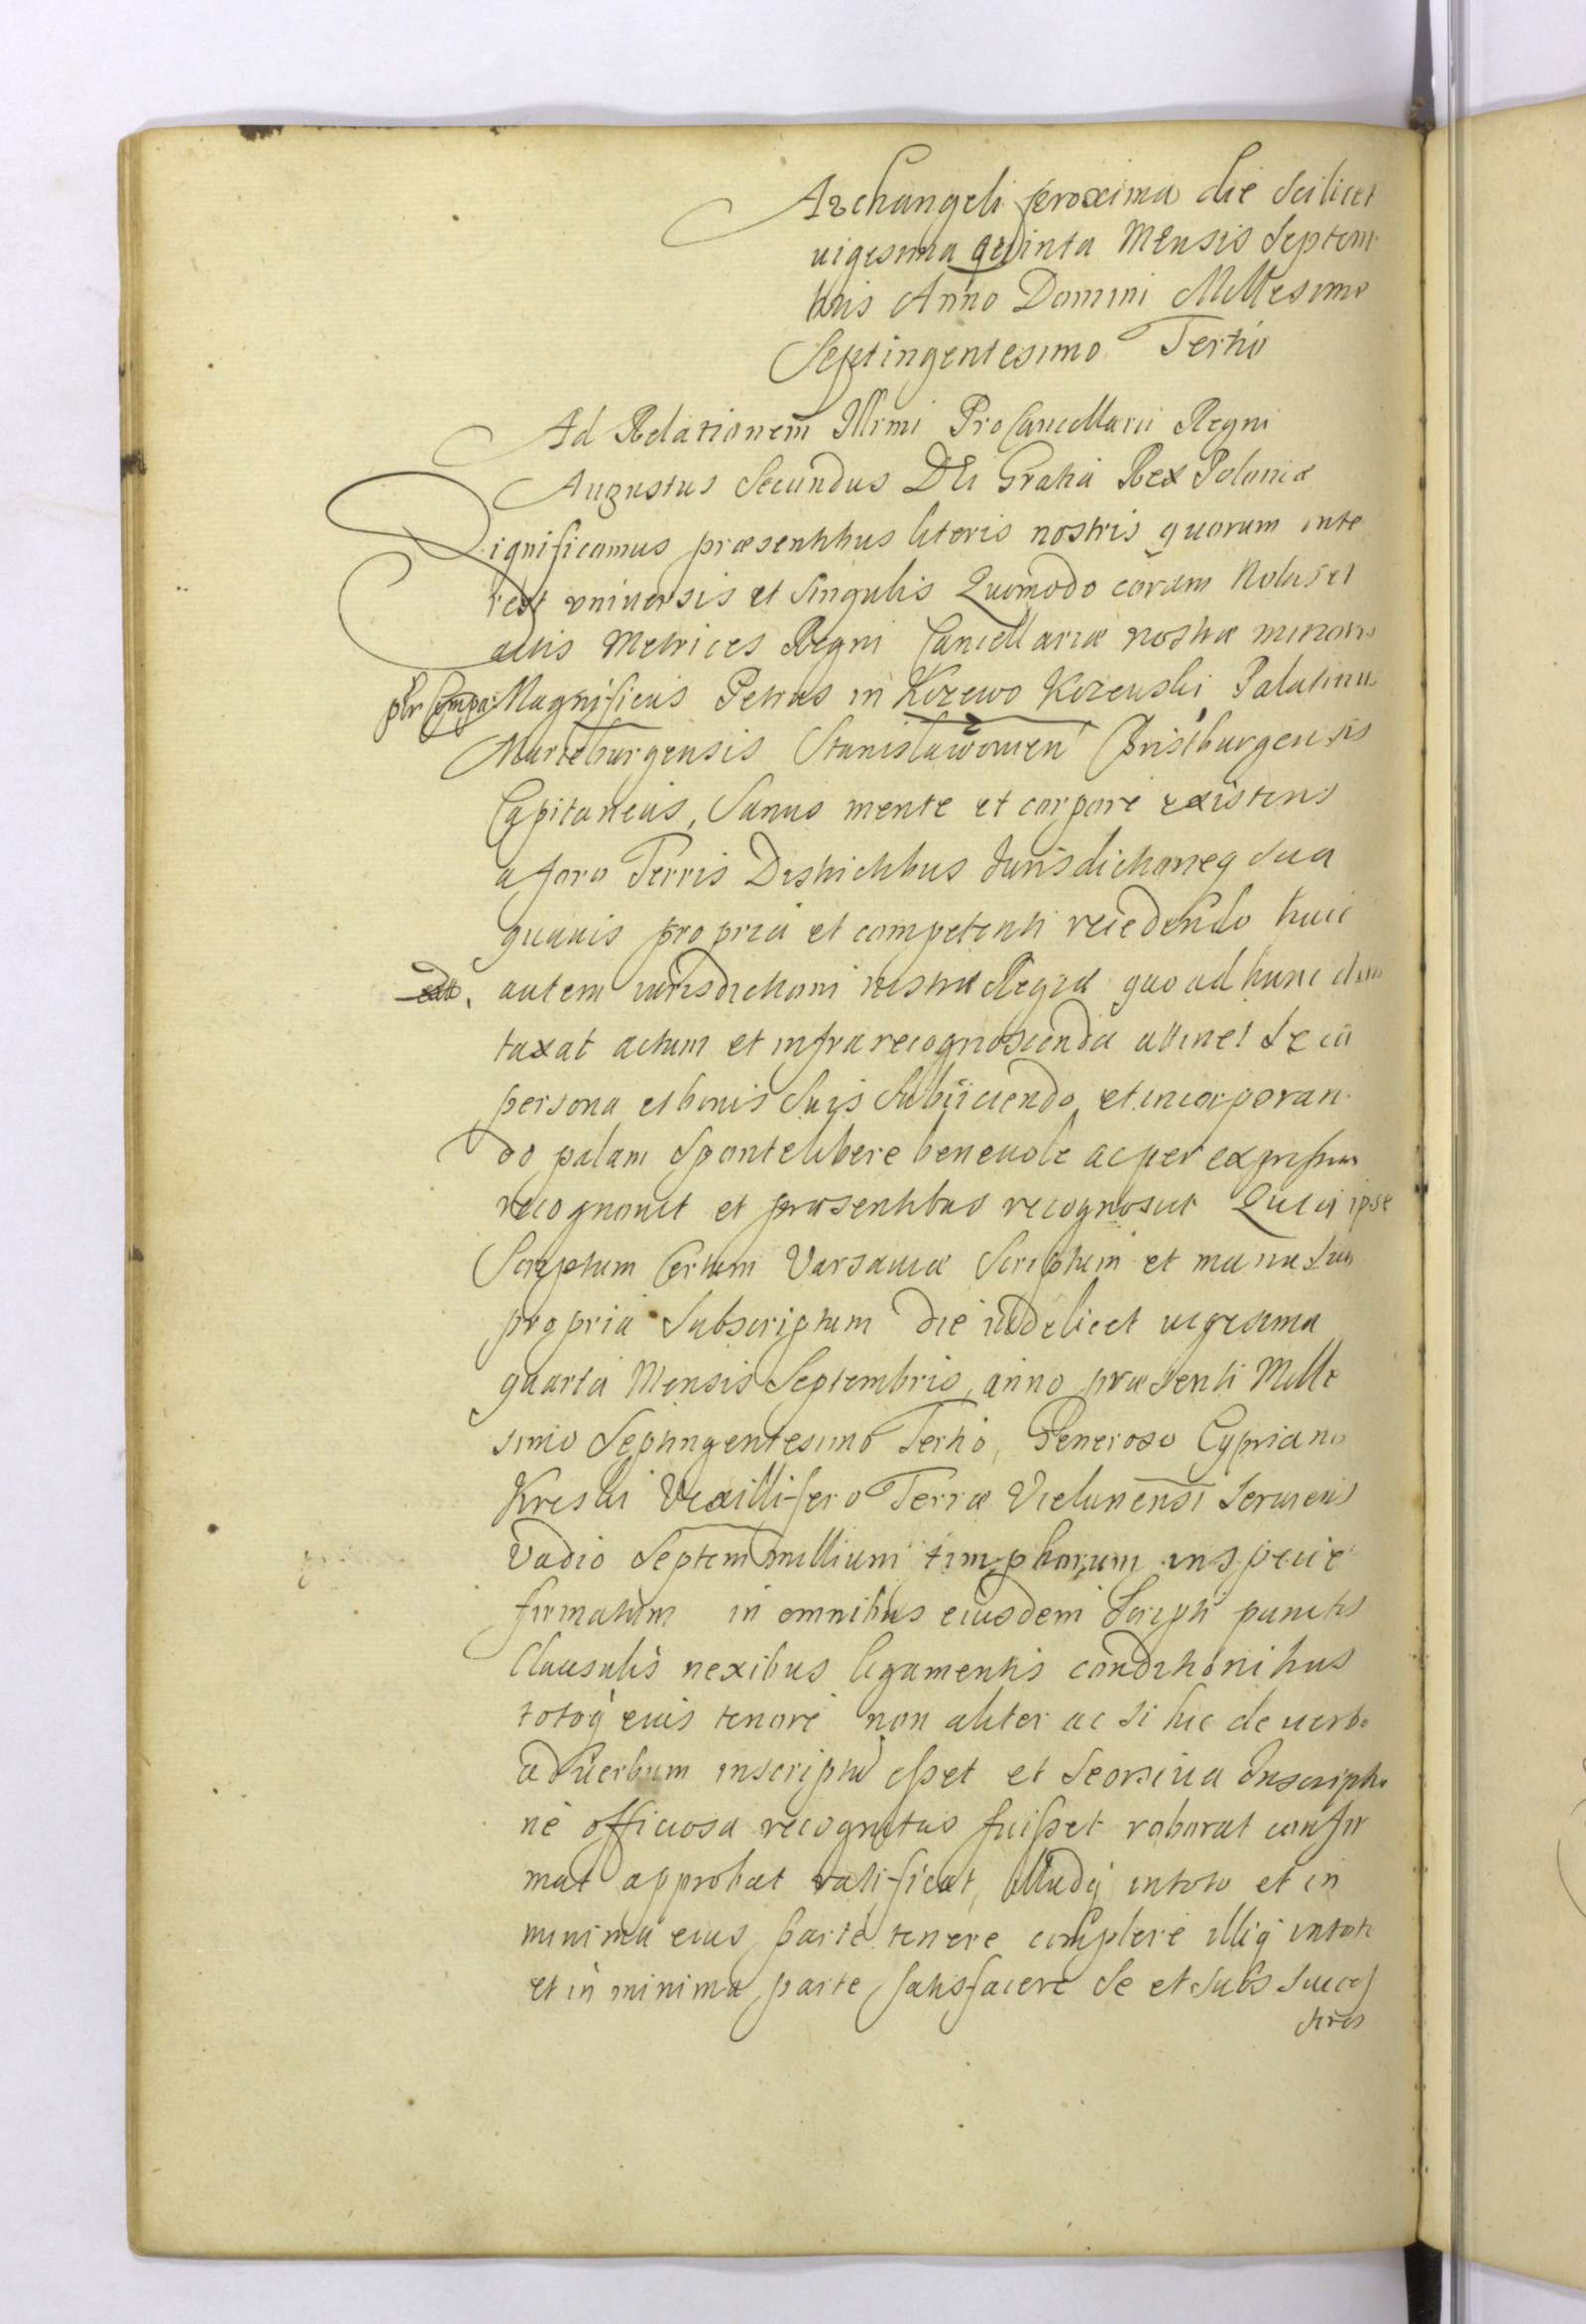 Archangeli proxima die scilicet
uigesima quinta Mensis Septem
bris Anno Domini Millesimo
Septingentesimo Tertio
Ad Relationem Illrmi ProCancellarii Regni
Augustus Secundus DEi Gratia Rex Poloniæ
Significamus præsentibus literis nostris quorum inte
rest vniuersis et singulis Quomodo coram Nobis et
actis Metrices Regni Cancellariæ nostræ minoris
Magnificus Petrus in Kczewo Kczewski Palatinus
Marieburgensis Stanislawowien Cristburgensis
Capitaneus, Sanus mente et corpore existens
a foro Terris Districtibus Jurisdictioneq sua
quauis propria et competenti recedendo huic
autem iurisdictioni nostræ Regiæ quo ad hunc dun
taxat actum et infra recognoscenda attinet se cu
persona et bonis suis subijciendo et incorporan
do palam sponte libere beneuole ac per expressum
recognouit et præsentibus recognoscit Quia ipse
Scriptum Certum Varsauiæ Scriptum et manu sua
propria subscriptum die videlicet uigesima
quarta Mensis Septembris, anno præsenti Mille
simo Septingentesimo Tertio, Generoso Cypriano
Kreski Vexillifero Terræ Vielunensi seruiens
Vadio septem millium timphorum in specie
firmatum in omnibus eiusdem Scripti punctis
Clausulis nexibus ligamentis conditionibus
totoq eius tenore non aliter ac si hic de uerbo
ad uerbum inscriptu esset et seorsiua Inscriptio
ne officiosa recognitus fuisset roborat confir
mat approbat ratificat, illudq in toto et in
minima eius parte tenere complere illiq in toto
et in minima parte satisfacere se et suos succes
sores